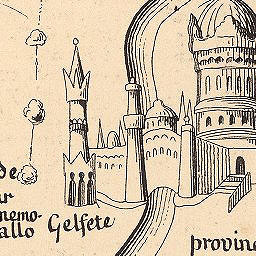 de
ar
nemo-
allo
Gelfete
provinc